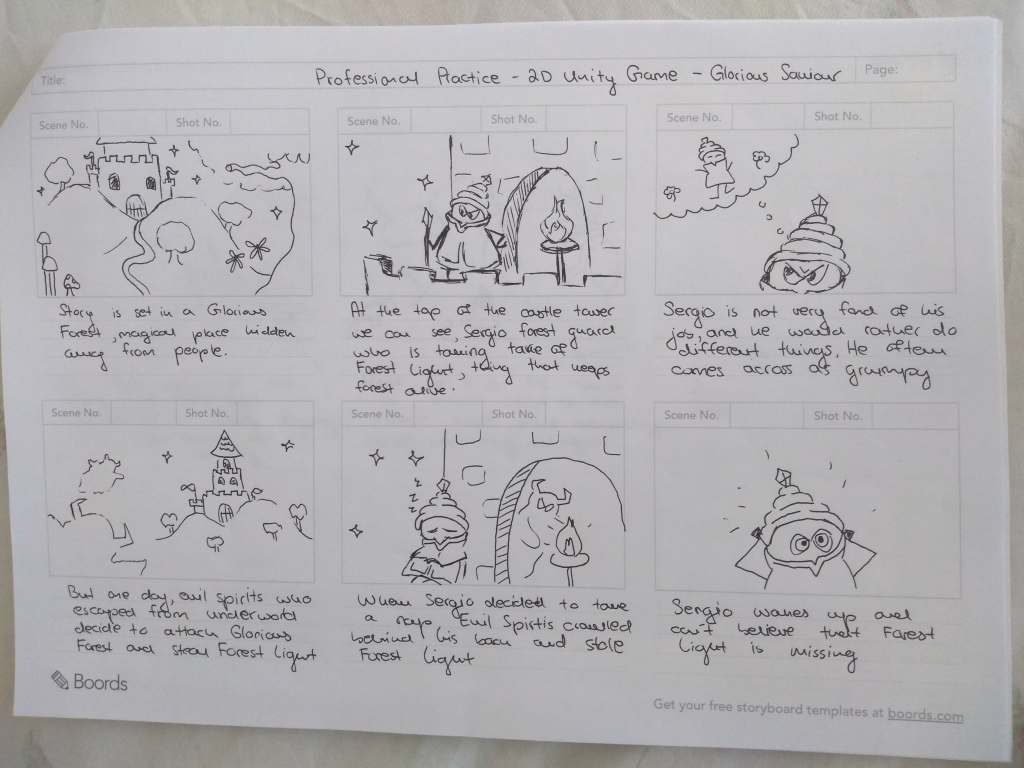 Title:
Professional Practice - 2D Unity Game - Glorious Saviour
Page:
Scene No.
Shot No.
Scene No.
Shot No.
Scene No.
Shot No.
Story is set in a Glorious
Forest, magical place hidden
away from people.
At the top of the castle tower
we can see, Sergio forest guard
who is taking take of
Forest Light, thing that keeps
forest alive.
Sergio is not very fond of his
job, and he would rather do
different things. He often
comes across as grumpy
Scene No.
Shot No.
Scene No.
Shot No.
Scene No.
Shot No.
z
z
z
z
But one day, evil spirits who
escaped from underworld
decide to attack Glorious
Forest and steal Forest Light
When Sergio decided to take
a nap Evil Spistis crawled
behind his back and stole
Forest Light
Sergio wakes up and
can't believe that Forest
Light is missing
Boords
Get your free storyboard templates at boords.com